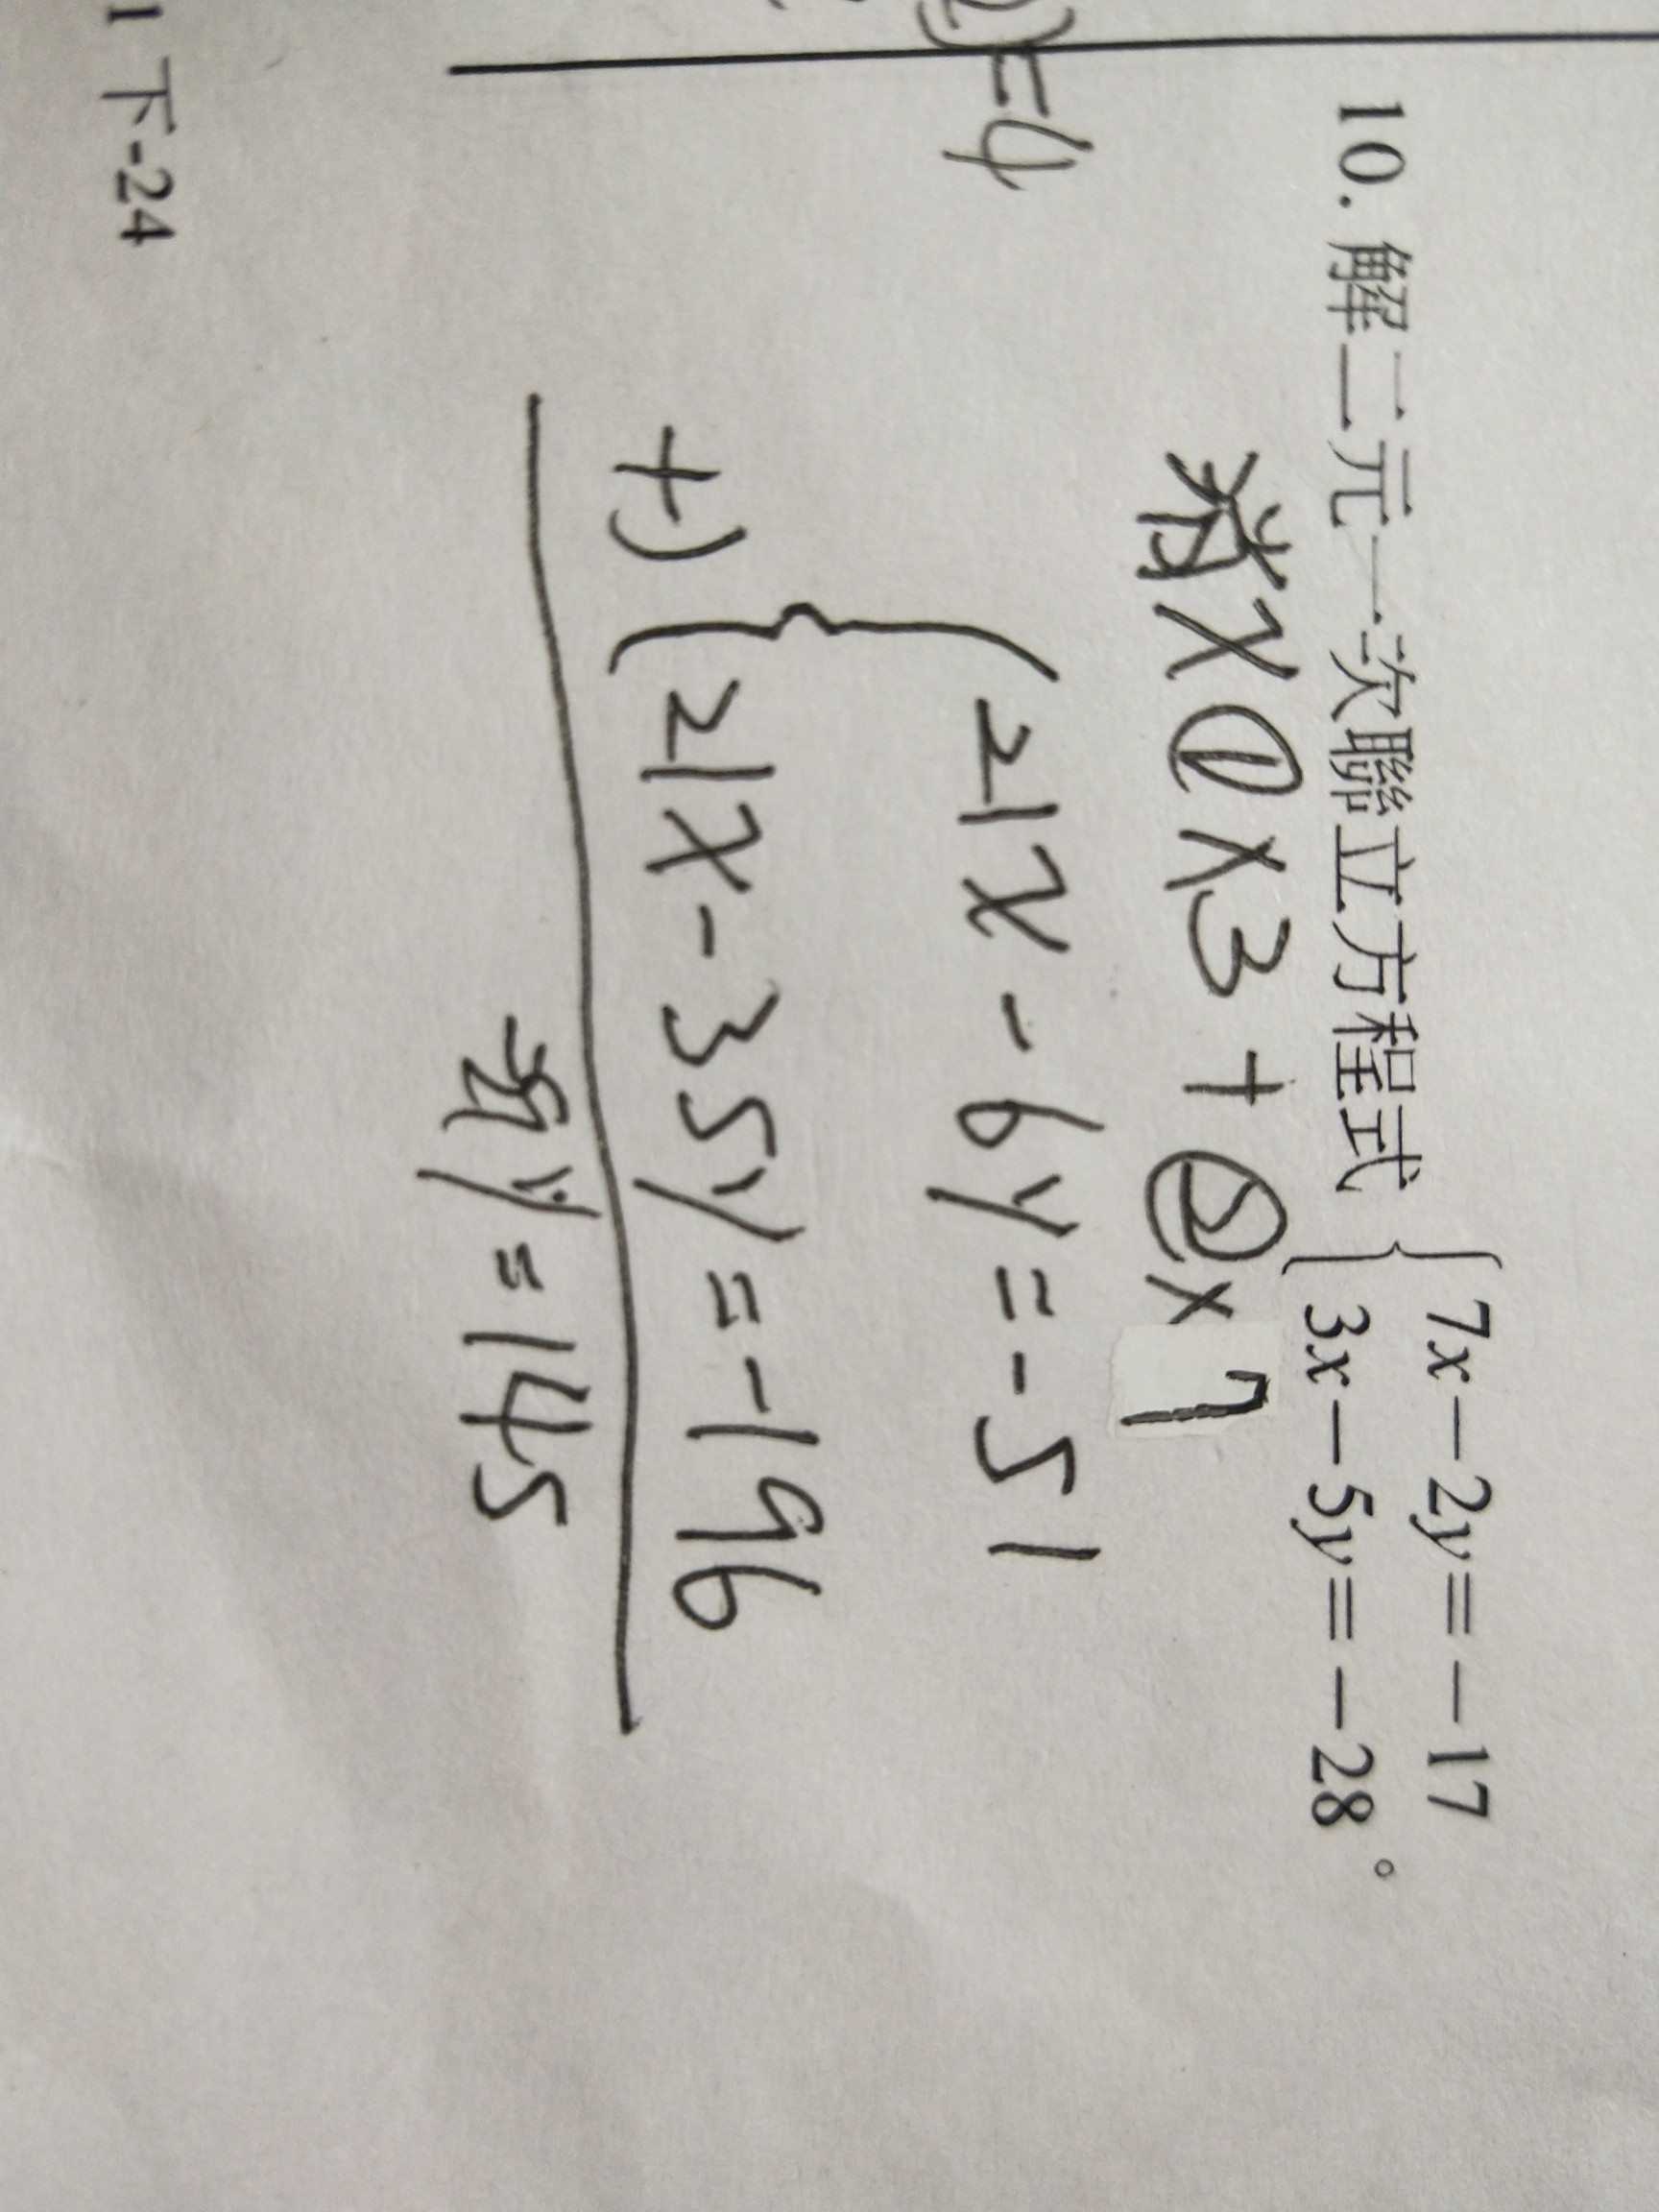 )=4
10. 解二元一次聯立方程式 { 7x－2y＝－17
3x－5y＝－28 。
消X ①x3 + ②x 7
{ 21x - 6y = -51
+) 21x - 35y = -196
y = 145
1下-24